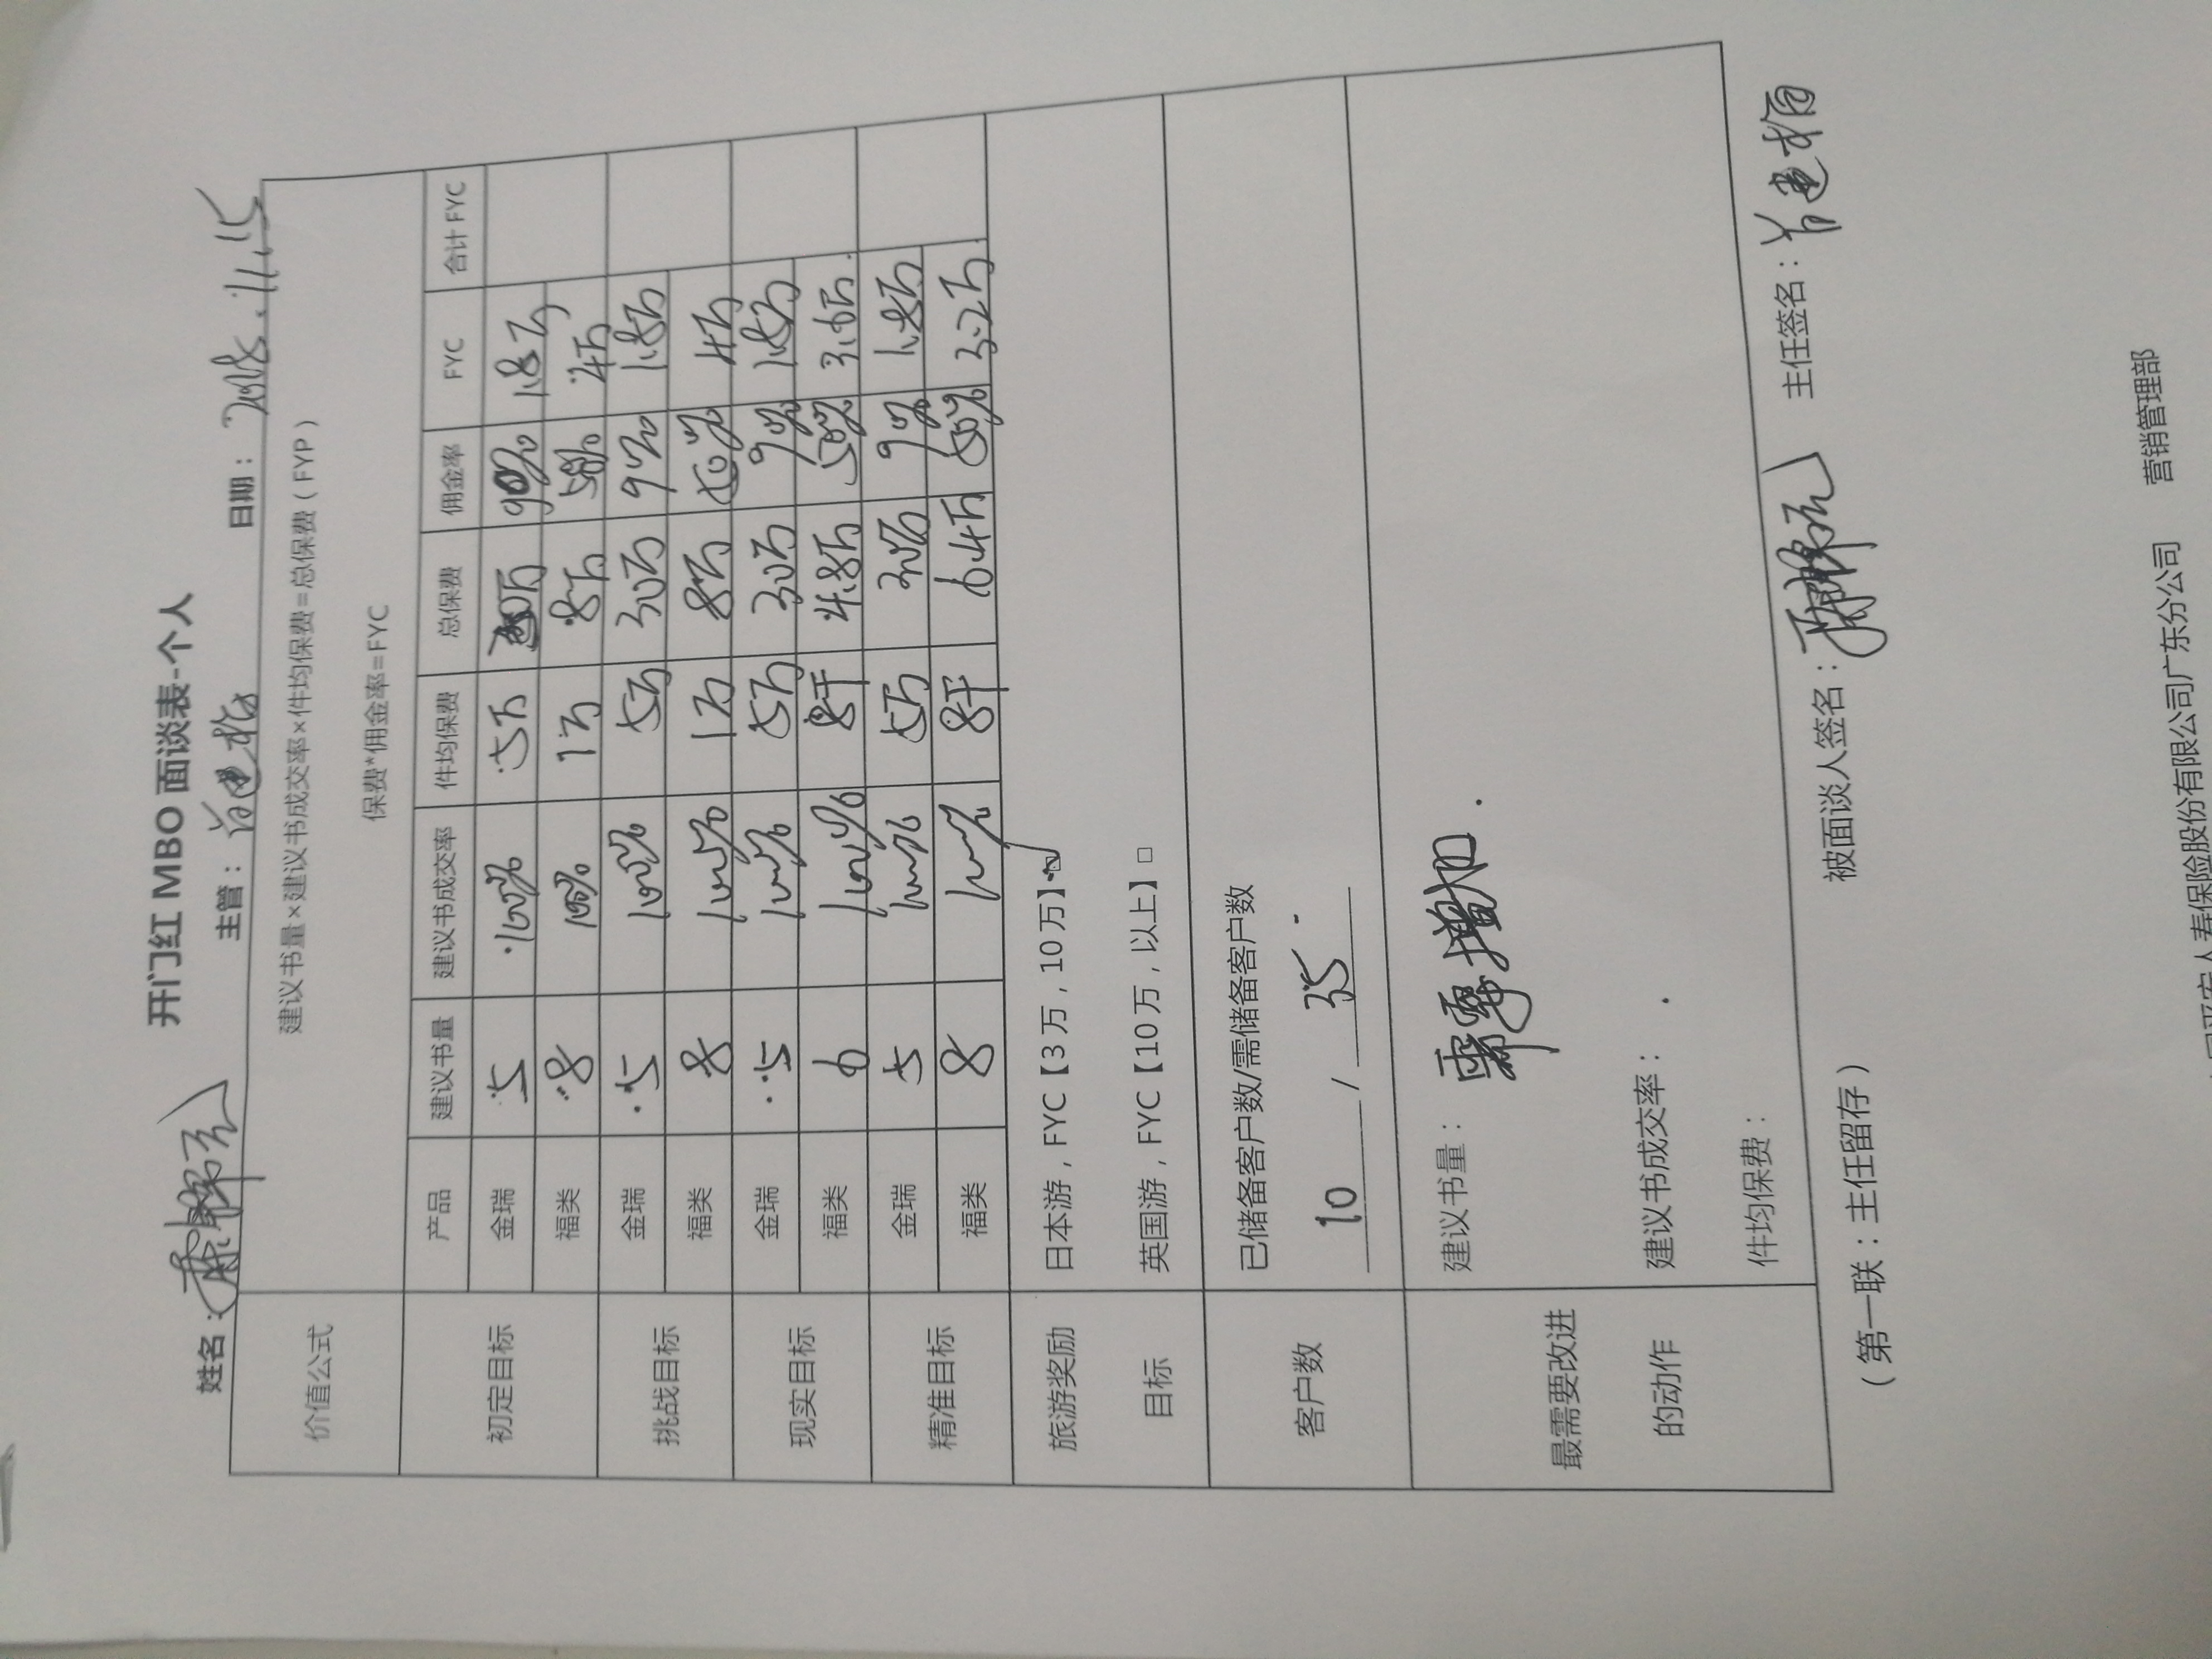 开门红 MBO 面谈表-个人
姓名： 主管： 日期：2018.11.15
价值公式 建议书量×建议书成交率×件均保费=总保费（FYP）
保费*佣金率=FYC
产品 建议书量 建议书成交率 件均保费 总保费 佣金率 FYC 合计 FYC
初定目标 金瑞 5 100% 5万 1.8万
福类 8 100% 1万 8万 50% 4万
挑战目标 金瑞 5 100% 5万 30万 9% 1.8万
福类 8 100% 1万 8万 50% 4万
现实目标 金瑞 5 100% 5万 30万 9% 1.8万
福类 6 100% 8千 4.8万 50% 3.6万
精准目标 金瑞 5 100% 5万 30万 9% 1.8万
福类 8 100% 8千 6.4万 50% 3.2万
旅游奖励目标 日本游，FYC【3万，10万】
英国游，FYC【10万，以上】□
客户数 已储备客户数/需储备客户数
10 / 35
最需要改进的动作 建议书量：需要增加.
建议书成交率：
件均保费：
被面谈人签名： 主任签名：
（第一联：主任留存）
平安人寿保险股份有限公司广东分公司 营销管理部